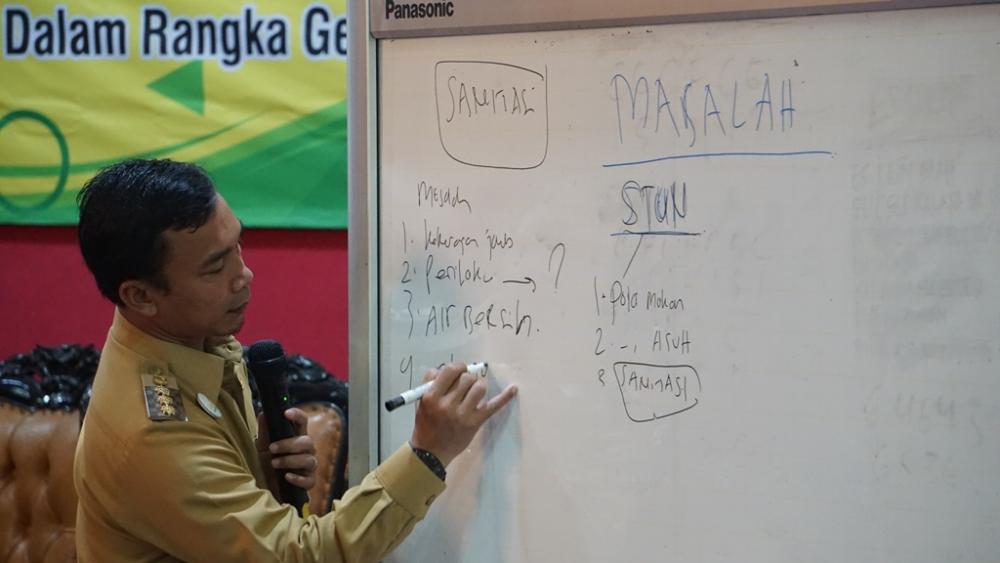 Dalam Rangka Ge
Panasonic
SANITASI
MAKALAH
STUN
1. Pola Makan
2. –, ASUH
3 SANITASI
1.
2. Perilaku → ?
3. AIR BERSIH.
4